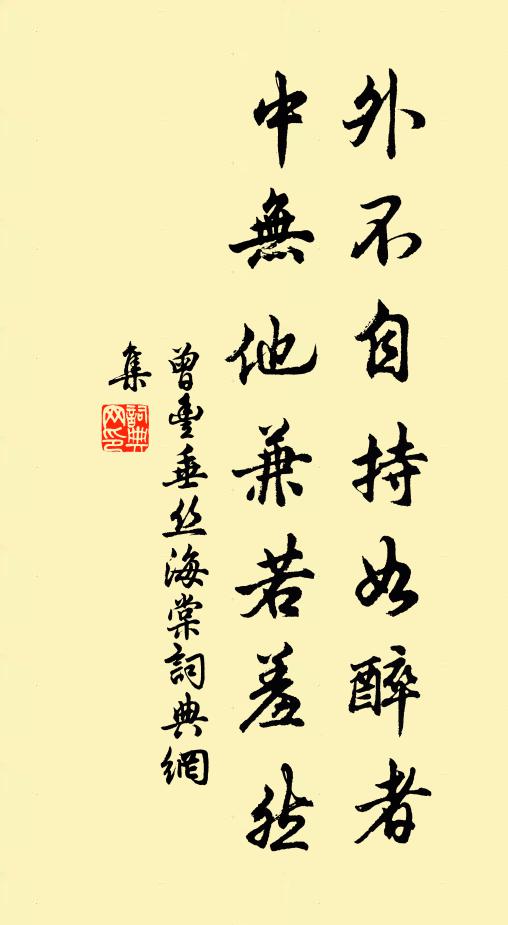 外不自持如醉者
中無他兼若羞然
曾豐垂丝海棠詞典網
集
詞典網印